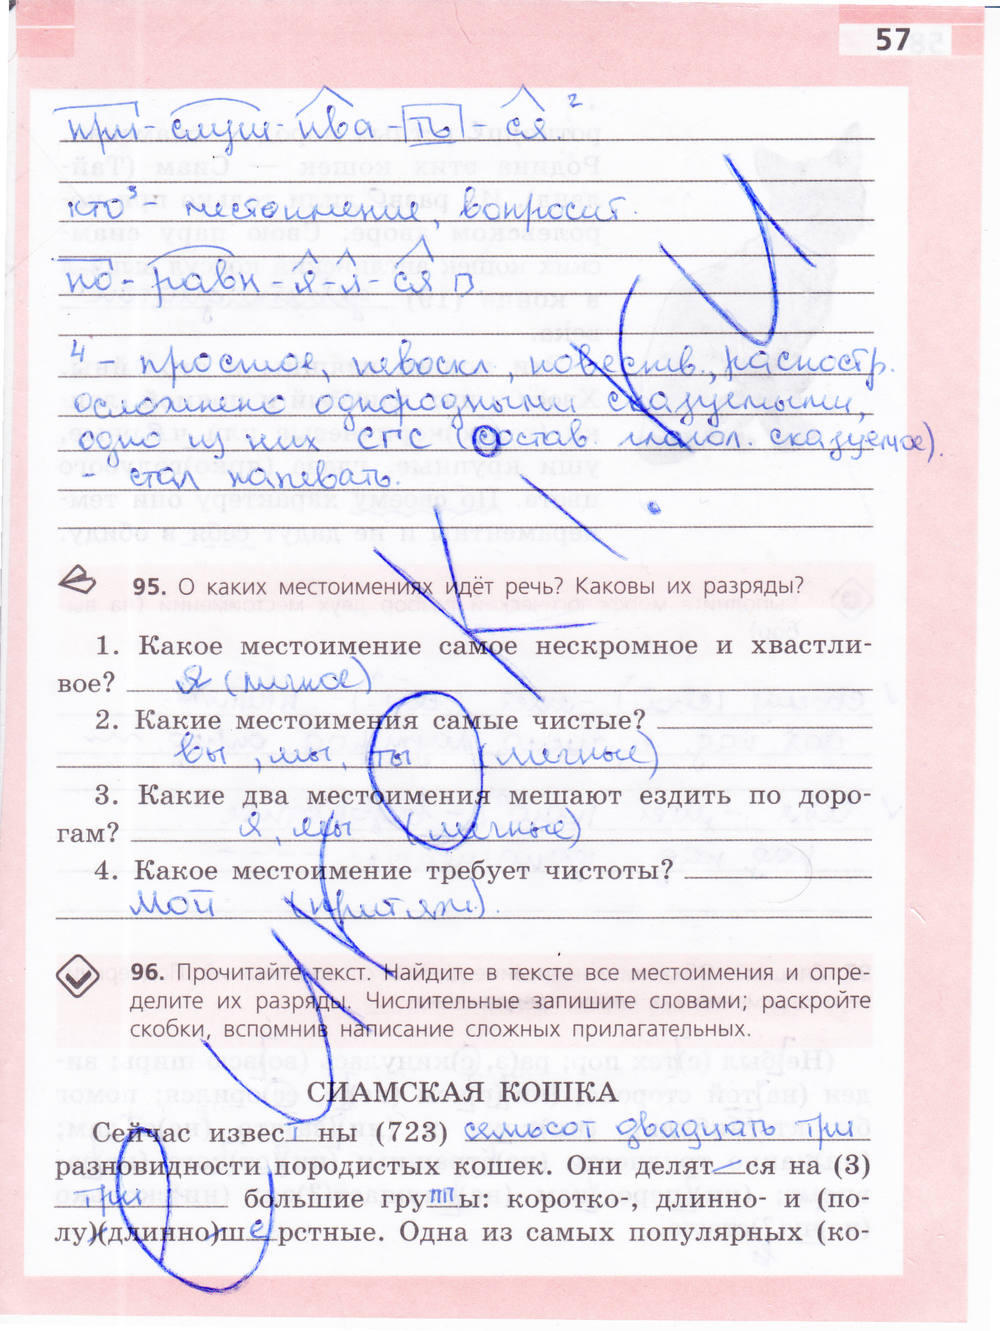 57
при-слуш-ива-ть-ся ²
кто³ - местоимение, вопросит.
по-равн-я-л-ся
4 - простое, невоскл, повеств., распостр.
осложнено однородными сказуемыми,
одно из них СГС (состав глагол. сказуемое).
- стал напевать.
95. О каких местоимениях идёт речь? Каковы их разряды?
1. Какое местоимение самое нескромное и хвастли-
вое? Я (личное)
2. Какие местоимения самые чистые?
вы, мы, ты (личные)
3. Какие два местоимения мешают ездить по доро-
гам? я, мы (личные)
4. Какое местоимение требует чистоты?
мой (притяж).
96. Прочитайте текст. Найдите в тексте все местоимения и опре-
делите их разряды. Числительные запишите словами; раскройте
скобки, вспомнив написание сложных прилагательных.
СИАМСКАЯ КОШКА
Сейчас извес_ны (723) семьсот двадцать три
разновидности породистых кошек. Они делят_ся на (3)
три большие группы: коротко-, длинно- и (по-
лу)(длинно)шёрстные. Одна из самых популярных (ко-